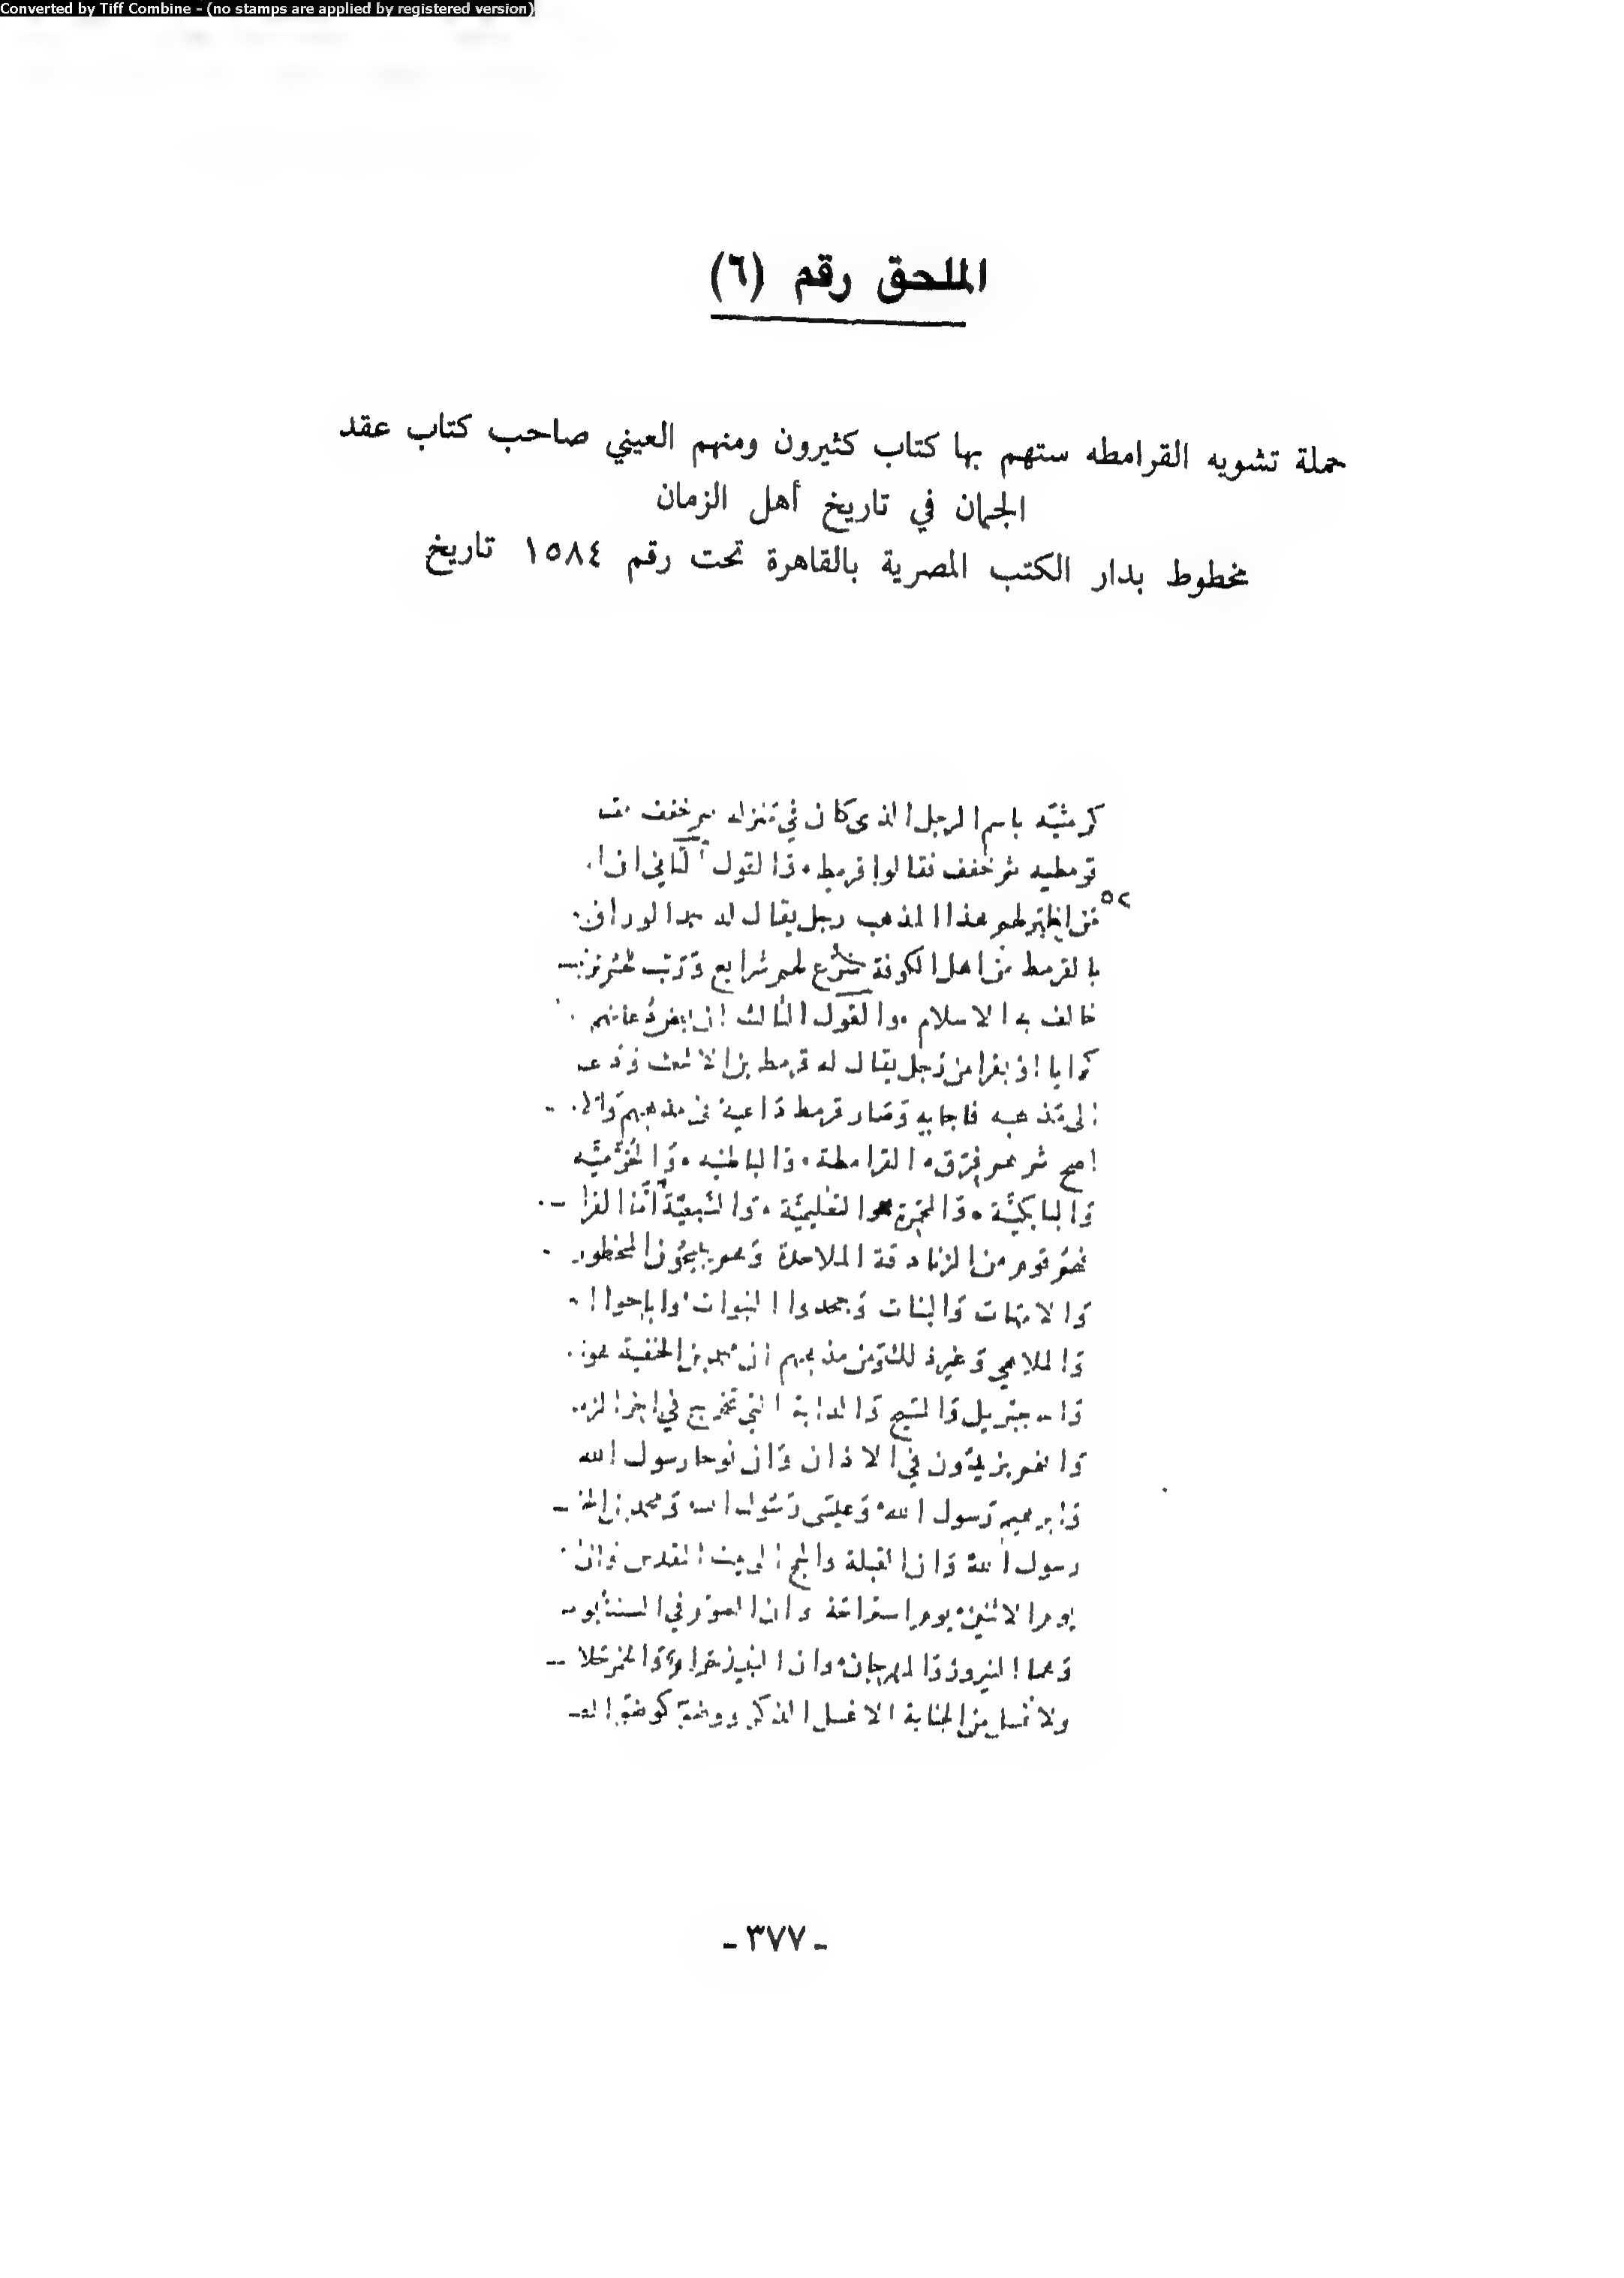 Converted by Tiff Combine - (no stamps are applied by registered version)
الملحق رقم (٦)
حملة تشويه القرامطه ستهم بها كتاب كثيرون ومنهم العيني صاحب كتاب عقد
الجمان في تاريخ أهل الزمان
مخطوط بدار الكتب المصرية بالقاهرة تحت رقم ١٥٨٤ تاريخ
كرميثه باسم الرجل الذى كان في منزله ثم خفف
قرمطيه ثم خفف فقالوا قرمط والقول الثاني ان
٥٢
من اظهر لهم هذا المذهب رجل يقال له
بالقرمط من اهل الكوفة شرع لهم شرايع ورتب لهم
خالف به الاسلام والقول الثالث ان بعض دعاتهم
كرا يا او بقرا من رجل يقال له قرمط بن الاشعث ودعا
الى مذهبه فاجابه وصار قرمط داعية من مذهبهم
اصح ثم هم فرق القرامطة والباطنيه والخرميه
والبابكية والمحمرة والتعليمية والسبعية اما القرا
فهم قوم من الزنادقة الملاحدة وهم يبيحون المحظور
والامهات والبنات وجحدوا النبوات واباحوا
والملاهي وغير ذلك ومن مذهبهم ان محمد بن الحنفية هو
وا جبريل والمسيح والدابة التي تخرج في اخر
وانهم يزيدون في الاذان وان نوحا رسول الله
وابرهيم رسول الله وعيسى رسول الله ومحمد بن
رسول الله وان القبلة والحج الى بيت المقدس وان
يوم الاثنين يوم استراحة وان الصوم في السنة
وهما النيروز والمهرجان وان النبيذ حرام والخمر حلا
ولا غسل من الجنابة الا غسل الذكر ووضوء كوضوء
- ٣٧٧ -